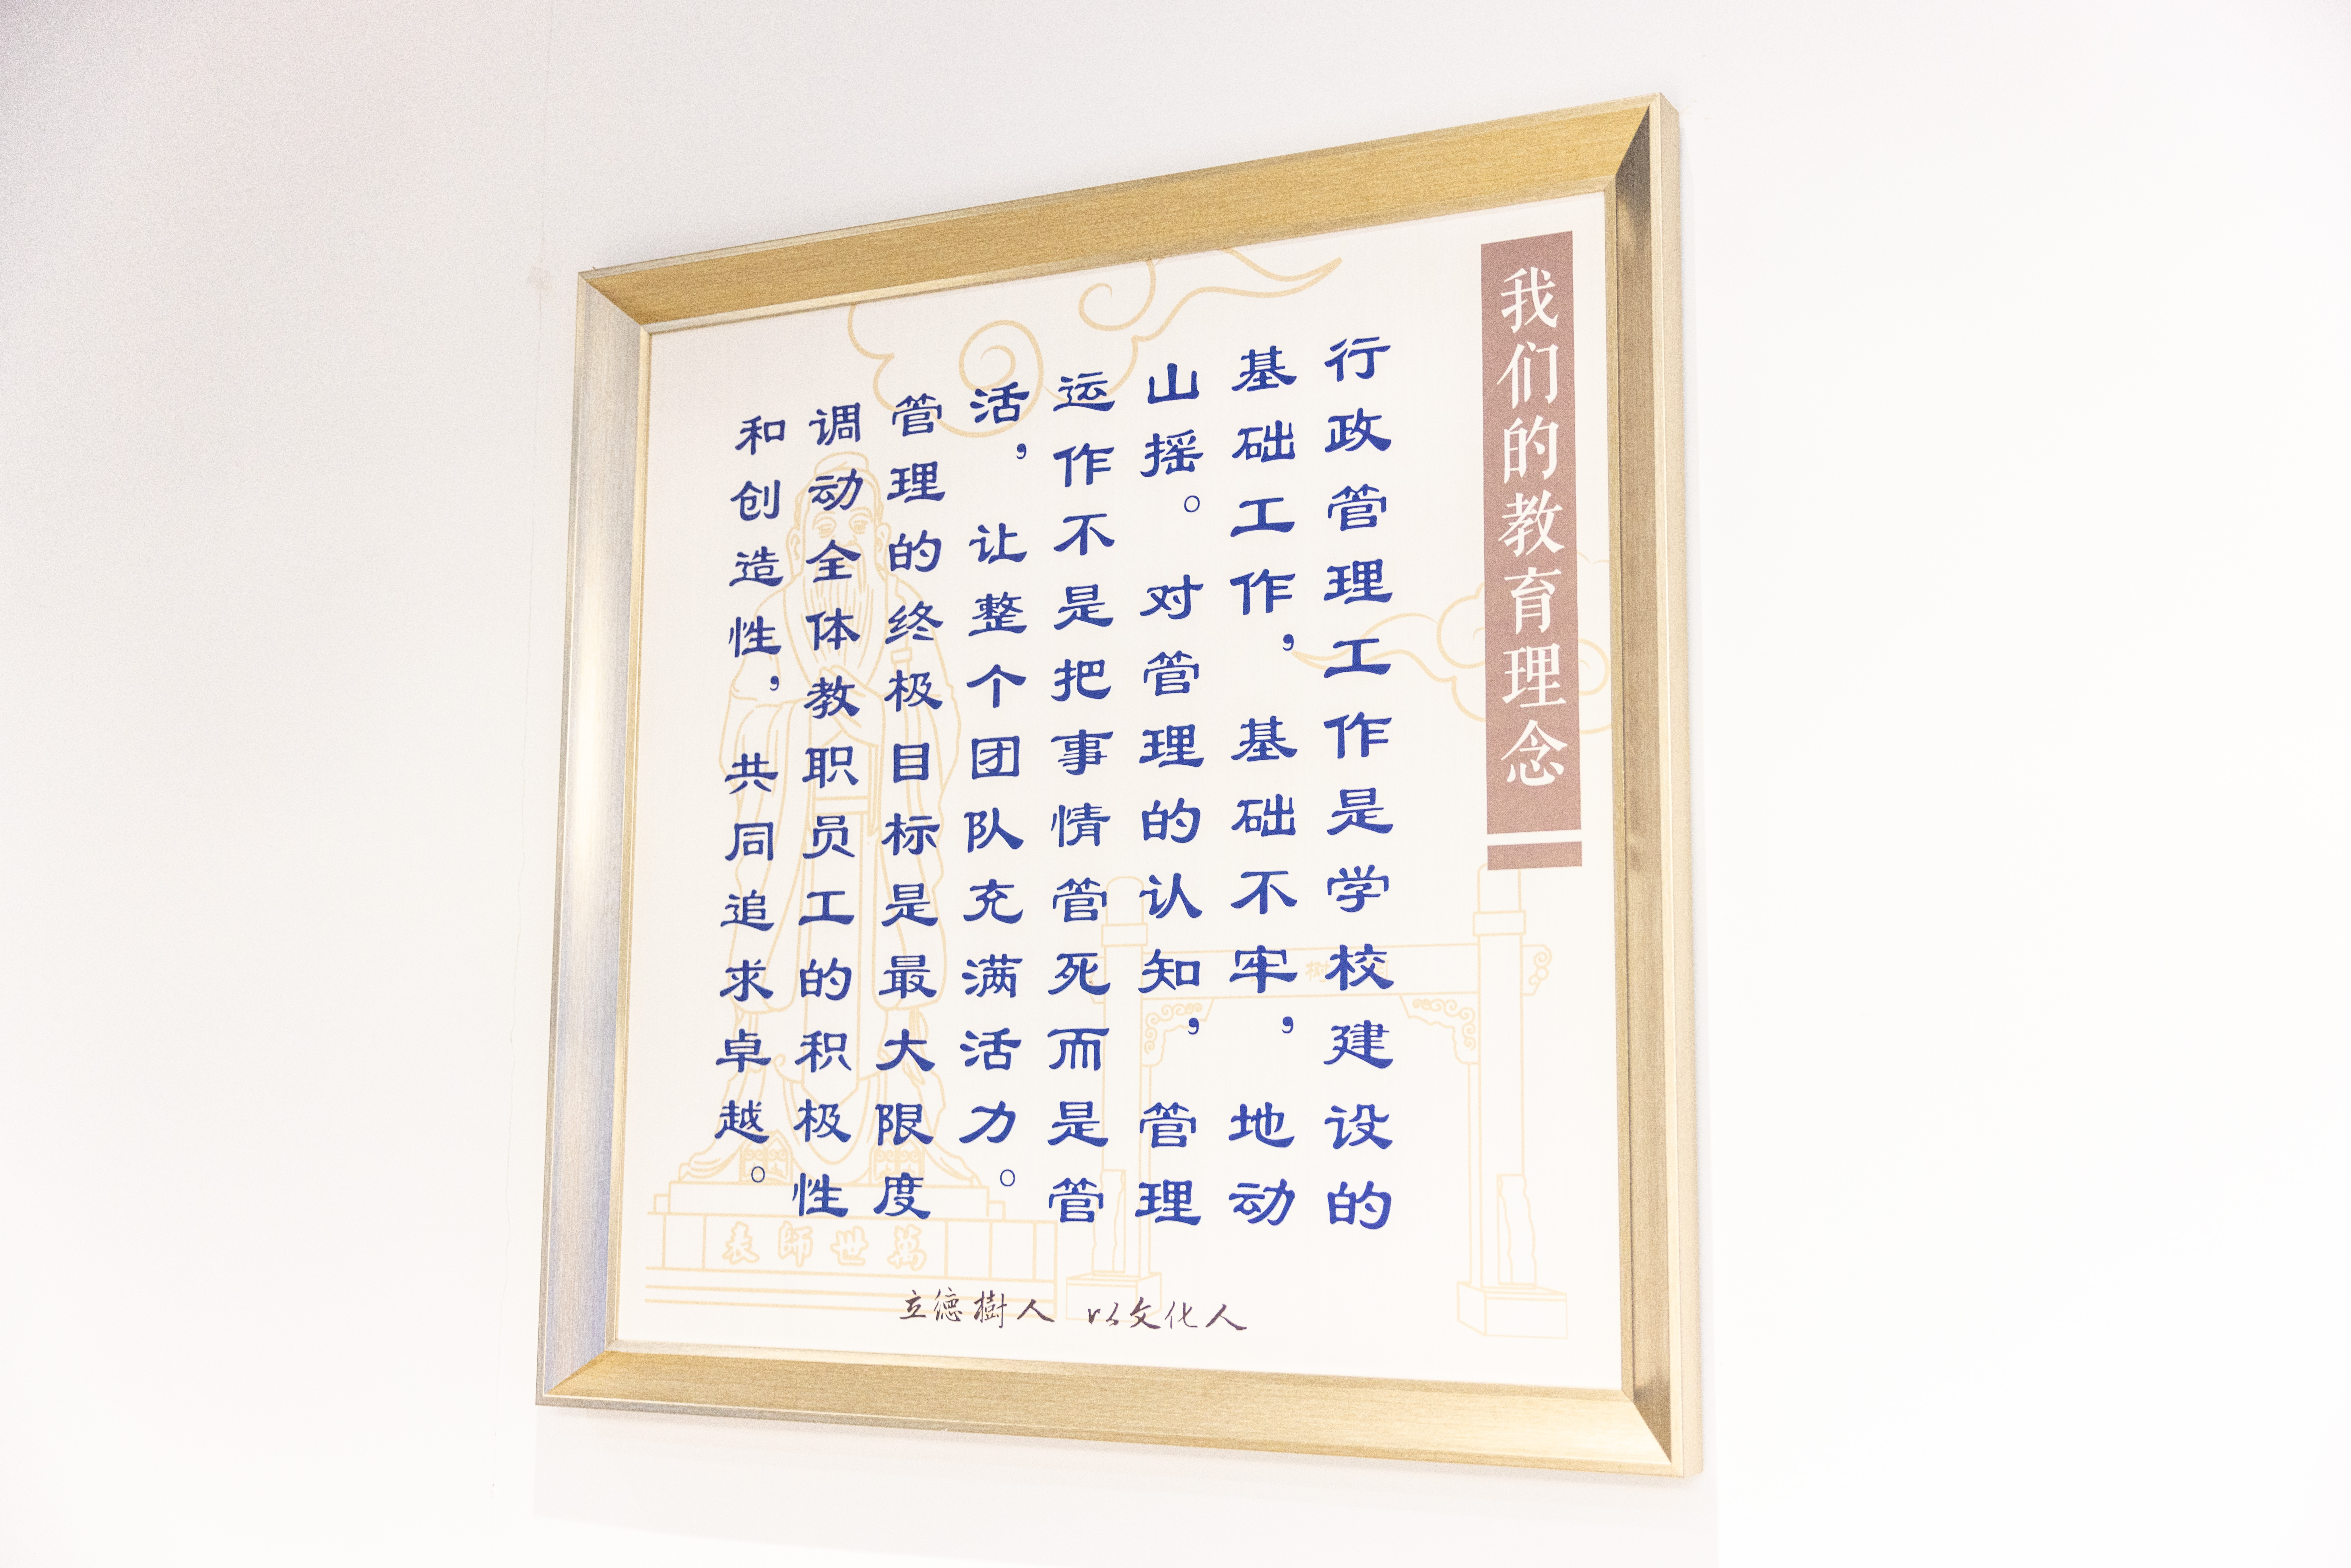 我们的教育理念
行政管理工作是学校建设的
基础工作，基础不牢，地动
山摇。对管理的认知，管理
运作不是把事情管死而是管
活，让整个团队充满活力。
管理的终极目标是最大限度
调动全体教职员工的积极性
和创造性，共同追求卓越。
萬世師表
立德樹人 以文化人